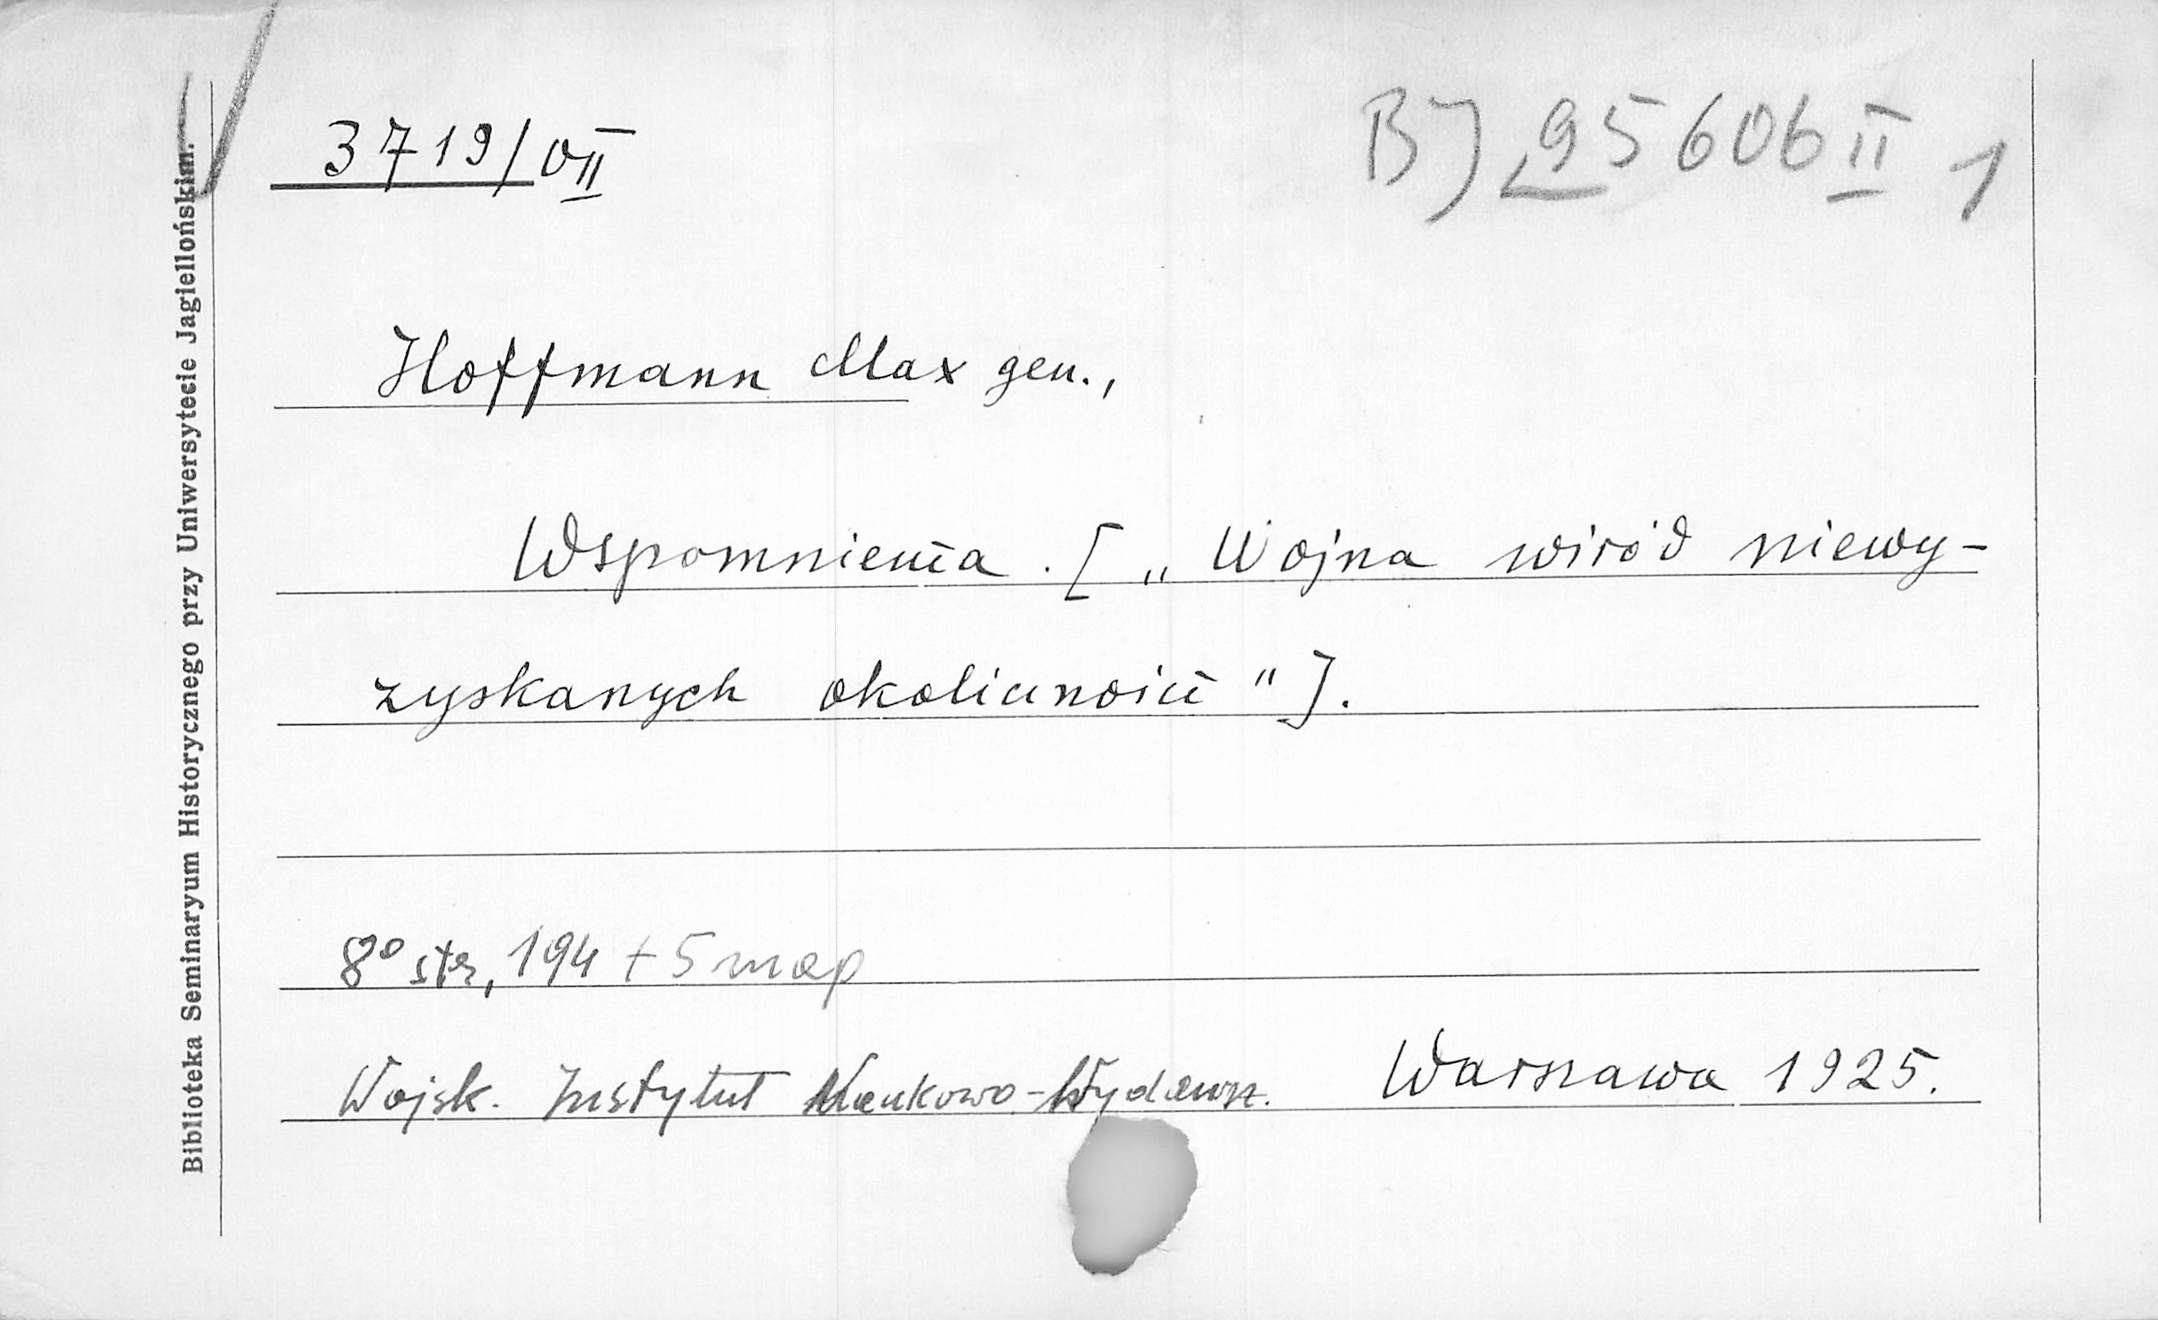 3719/VII
BJ 95606 II 1
Hoffmann Max gen.,
Wspomnienia. [„Wojna wśród niewy-
zyskanych okoliczności"].
8° str, 194 + 5 map
Wojsk. Instytut Naukowo-Wydawn. Warszawa 1925.
Biblioteka Seminaryum Historycznego przy Uniwersytecie Jagiellońskim.